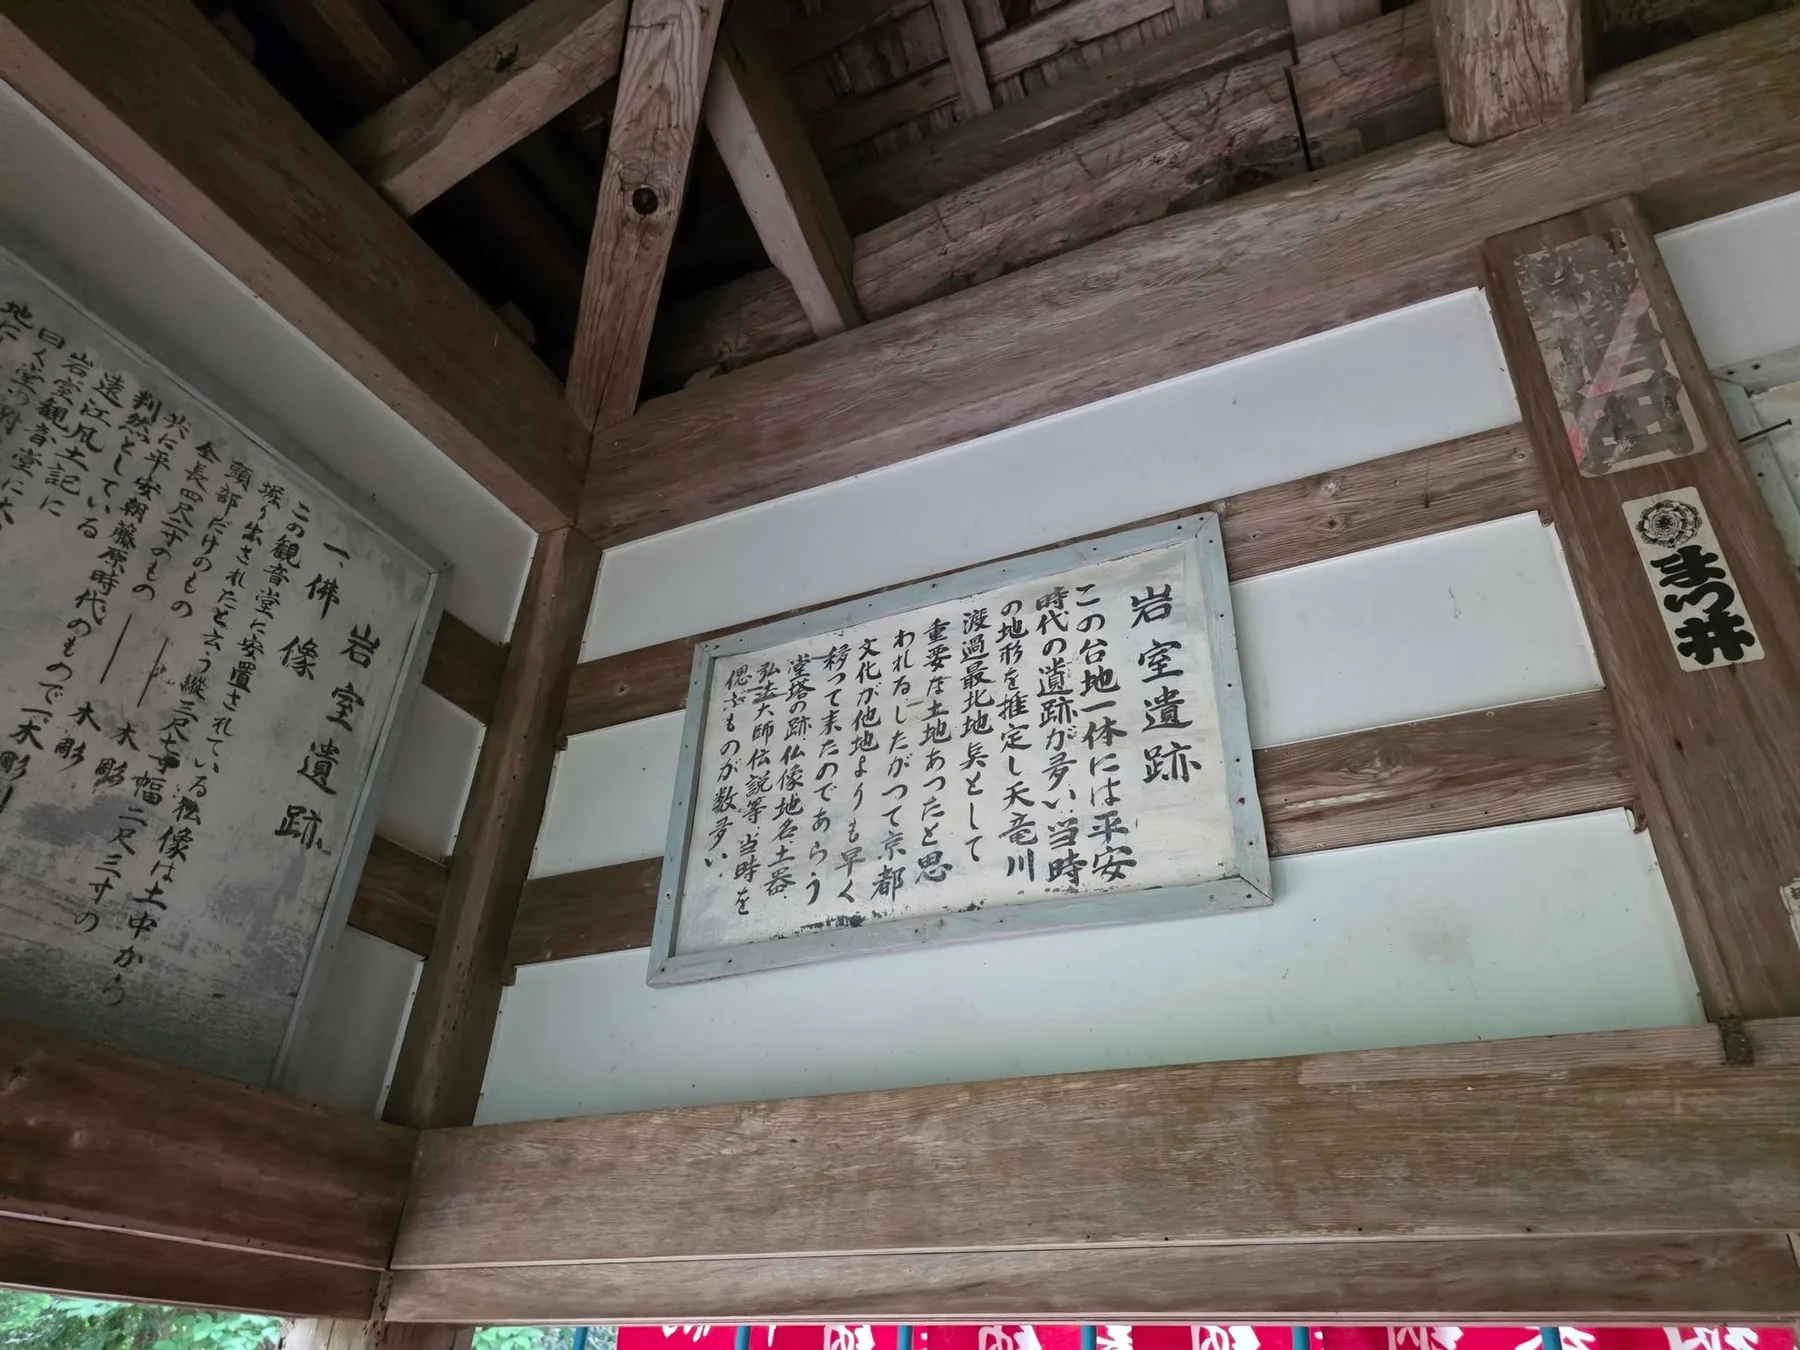 岩室遺跡
この台地一体には平安
時代の遺跡が多い.当時
の地形を推定し天竜川
渡過最北地点として
重要な土地あったと思
われる_したがつて京都
文化が他地よりも早く
移って来たのであらう
堂塔の跡仏像地名.土器.
弘法大師伝説等.当時を
偲ぶものが数多い.
岩室遺跡
一、佛像
この観音堂に安置されている仏像は土中から
堀り出されたと云う縦三尺七寸幅二尺三寸の
頭部だけのもの ― 木彫
全長四尺二寸のもの ― 木彫
共に平安朝藤原時代のもので一木彫り
判然としている
遠江風土記に
岩室観音堂に
曰く堂の附
地に
まつ井